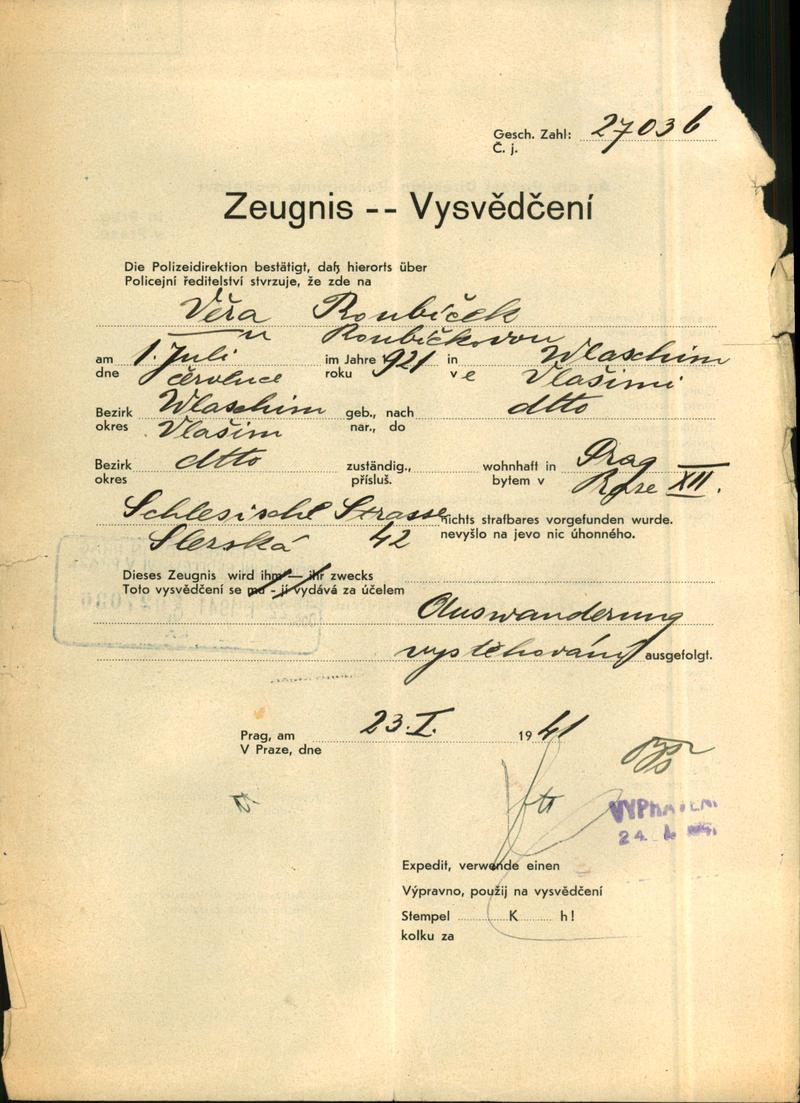 Gesch. Zahl: 27036
Č. j.
Zeugnis -- Vysvědčení
Die Polizeidirektion bestätigt, daß hierorts über
Policejní ředitelství stvrzuje, že zde na
Věra Roubíček
Roubíčkovou
am 1. Juli im Jahre 1921 in Wlaschim
dne července roku ve Vlašimi
Bezirk Wlaschim geb., nach dtto
okres Vlašim nar., do
Bezirk dtto zuständig., wohnhaft in Prag
okres přísluš. bytem v Praze XII.
Schlesische Strasse nichts strafbares vorgefunden wurde.
Slezská 42 nevyšlo na jevo nic úhonného.
Dieses Zeugnis wird ihm — ihr zwecks
Toto vysvědčení se mu - jí vydává za účelem
Auswanderung
vystěhování ausgefolgt.
Prag, am 23. I. 1941
V Praze, dne
VYPRAVENO
24. I. 1941
Expedit, verwende einen
Výpravno, použij na vysvědčení
Stempel K h!
kolku za